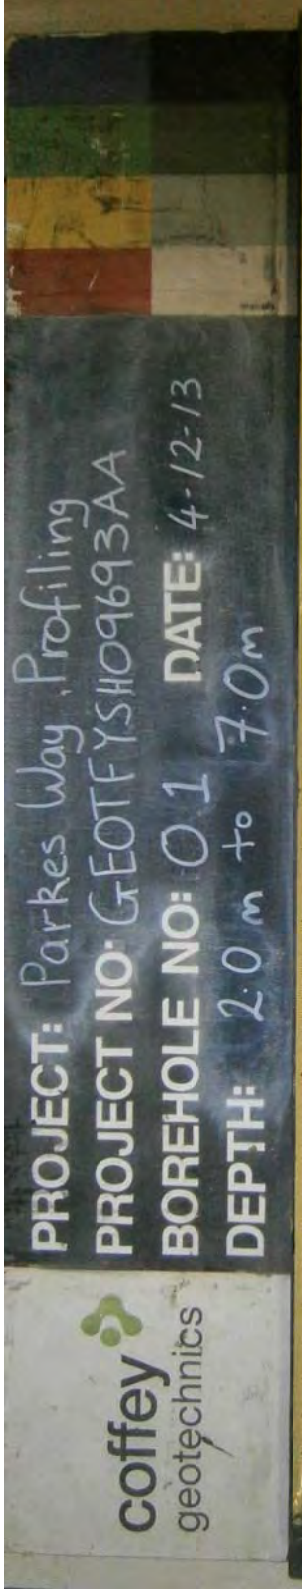 coffey
geotechnics
PROJECT: Parkes Way, Profiling
PROJECT NO: GEOTFYSH09693AA
BOREHOLE NO: 01 DATE: 4-12-13
DEPTH: 2.0 m to 7.0m